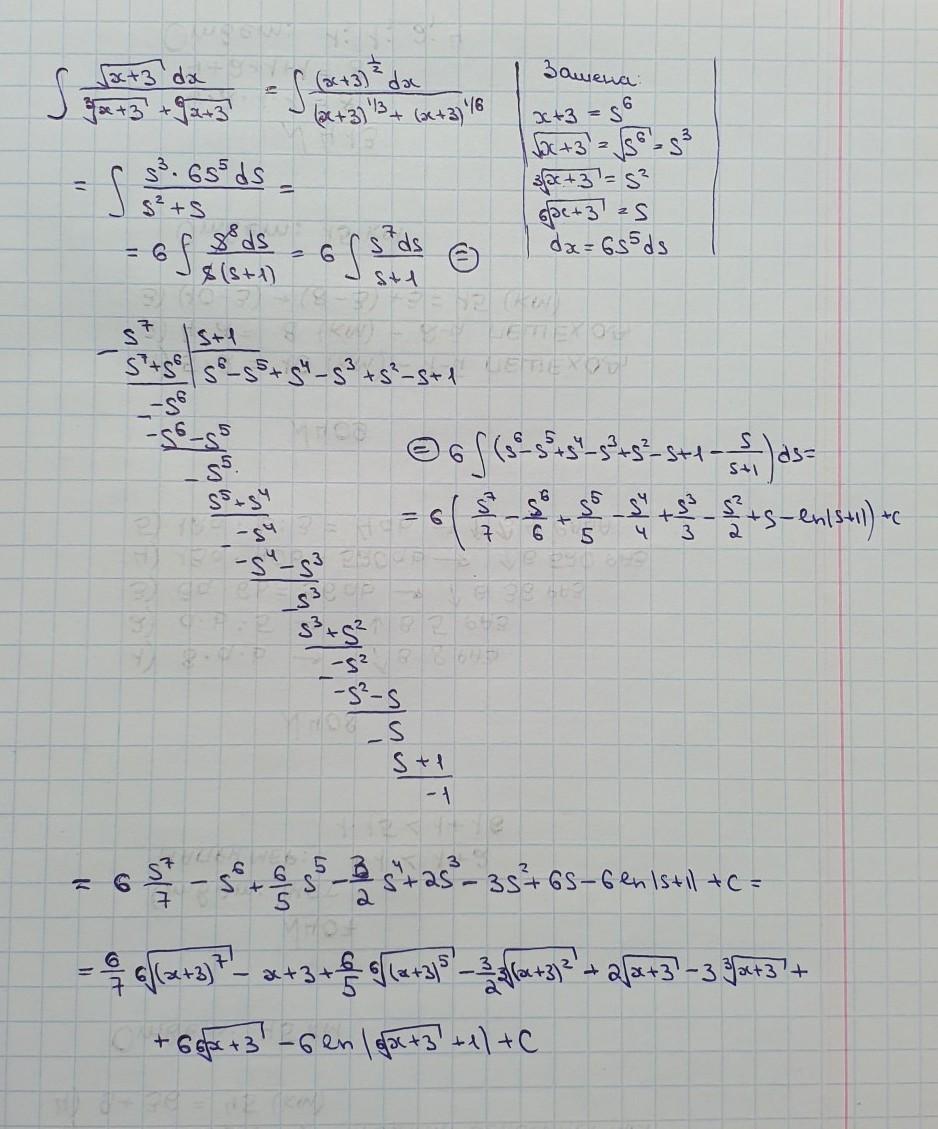 ∫ √(x+3) dx / (∛(x+3) + ⁶√(x+3)) = ∫ (x+3)^(1/2) dx / ((x+3)^(1/3) + (x+3)^(1/6))
Замена:
x+3 = s⁶
√(x+3) = √(s⁶) = s³
∛(x+3) = s²
⁶√(x+3) = s
dx = 6s⁵ds
= ∫ s³ · 6s⁵ ds / (s² + s) =
= 6 ∫ s⁸ ds / (s(s+1)) = 6 ∫ s⁷ ds / (s+1) ⊜
− s⁷ | s+1
s⁷+s⁶ | s⁶−s⁵+s⁴−s³+s²−s+1
− −s⁶
−s⁶−s⁵
− s⁵
s⁵+s⁴
− −s⁴
−s⁴−s³
− s³
s³+s²
− −s²
−s²−s
− s
s+1
−1
⊜ 6 ∫ (s⁶−s⁵+s⁴−s³+s²−s+1 − s/(s+1)) ds =
= 6 ( s⁷/7 − s⁶/6 + s⁵/5 − s⁴/4 + s³/3 − s²/2 + s − ln|s+1|) + c
= 6 s⁷/7 − s⁶ + 6/5 s⁵ − 3/2 s⁴ + 2s³ − 3s² + 6s − 6 ln|s+1| + c =
= 6/7 ⁶√((x+3)⁷) − x+3 + 6/5 ⁶√((x+3)⁵) − 3/2 ∛((x+3)²) + 2√(x+3) − 3 ∛(x+3) +
+ 6 ⁶√(x+3) − 6 ln|⁶√(x+3) + 1| + C